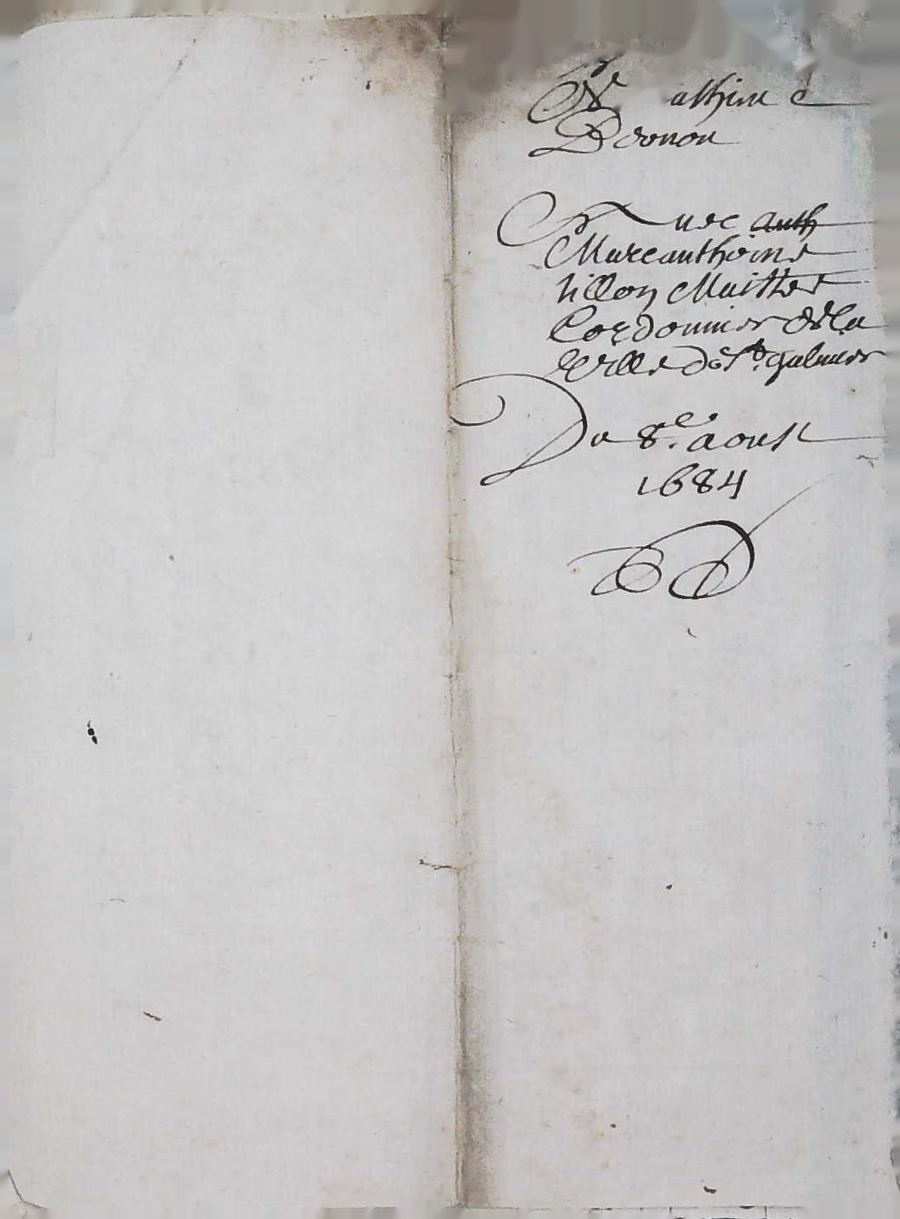 athine
Avec ~~auth~~
Marcanthoine
tillon Maistre
Cordonnier de la
ville de St. galmier
Du 8e. aoust
1684